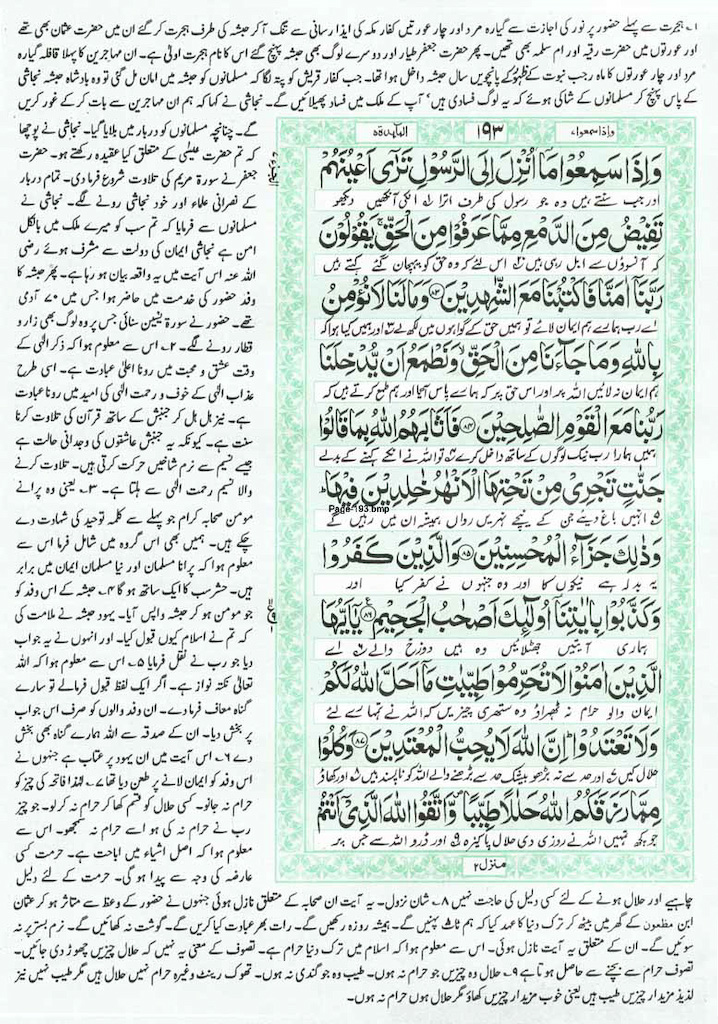 ۱۔ ہجرت سے پہلے حضور پر نور کی اجازت سے گیارہ مرد اور چار عورتیں کفار مکہ کی ایذا رسانی سے تنگ آکر حبشہ کی طرف ہجرت کر گئے ان میں حضرت عثمان بھی تھے
اور عورتوں میں حضرت رقیہ اور ام سلمہ بھی تھیں۔ پھر حضرت جعفر طیار اور دوسرے لوگ بھی حبشہ پہنچ گئے اس کا نام ہجرت اولٰی ہے۔ ان مہاجرین کا پہلا قافلہ گیارہ
مرد اور چار عورتوں کا ماہ رجب نبوت کے ظہور کے پانچویں سال حبشہ داخل ہوا تھا۔ جب کفار قریش کو پتہ لگا کہ مسلمانوں کو حبشہ میں امان مل گئی تو وہ بادشاہ حبشہ نجاشی
کے پاس پہنچ کر مسلمانوں کے شاکی ہوئے کہ یہ لوگ فسادی ہیں' آپ کے ملک میں فساد پھیلائیں گے۔ نجاشی نے کہا کہ ہم ان مہاجرین سے بات کر کے غور کریں
گے۔ چنانچہ مسلمانوں کو دربار میں بلایا گیا۔ نجاشی نے پوچھا
کہ تم حضرت عیسٰی کے متعلق کیا عقیدہ رکھتے ہو۔ حضرت
جعفر نے سورۃ مریم کی تلاوت شروع فرما دی۔ تمام دربار
کے نصرانی علماء اور خود نجاشی رونے لگے۔ نجاشی نے
مسلمانوں سے فرمایا کہ تم سب کو میرے ملک میں بالکل
امن ہے نجاشی ایمان کی دولت سے مشرف ہوئے رضی
اللہ عنہ اس آیت میں یہ واقعہ بیان ہو رہا ہے۔ پھر حبشہ کا
وفد حضور کی خدمت میں حاضر ہوا جس میں ۷۰ آدمی
تھے۔ حضور نے سورۃ یٰسین سنائی جس پر وہ لوگ بھی زار و
قطار رونے لگے۔ ۲۔ اس سے معلوم ہوا کہ ذکر الٰہی کے
وقت عشق و محبت میں رونا اعلٰی عبادت ہے۔ اسی طرح
عذاب الٰہی کے خوف و رحمت الٰہی کی امید میں رونا عبادت
ہے۔ نیز ہل ہل کر جنبش کے ساتھ قرآن کی تلاوت کرنا
سنت ہے۔ کیونکہ یہ جنبش عاشقوں کی وجدانی حالت ہے
جیسے نسیم سے نرم شاخیں حرکت کرتی ہیں۔ تلاوت کرنے
والا نسیم رحمت الٰہی سے ہلتا ہے۔ ۳۔ یعنی وہ پرانے
مومن صحابہ کرام جو پہلے سے کلمہ توحید کی شہادت دے
چکے ہیں۔ ہمیں بھی اس گروہ میں شامل فرما اس سے
معلوم ہوا کہ پرانا مسلمان اور نیا مسلمان ایمان میں برابر
ہیں۔ حشر سب کا ایک ساتھ ہو گا ۴۔ حبشہ کے اس وفد کو
جو مومن ہو کر حبشہ واپس آیا۔ یہود حبشہ نے ملامت کی
کہ تم نے اسلام کیوں قبول کیا۔ اور انہوں نے یہ جواب
دیا جو رب نے نقل فرمایا ۵۔ اس سے معلوم ہوا کہ اللہ
تعالٰی نکتہ نواز ہے۔ اگر ایک لفظ قبول فرمالے تو سارے
گناہ معاف فرمادے۔ ان وفد والوں کو صرف اس جواب
پر بخش دیا۔ ان کے صدقہ سے اللہ ہمارے گناہ بھی بخش
دے ۶۔ اس آیت میں ان یہود پر عتاب ہے جنہوں نے
اس وفد کو ایمان لانے پر طعن دیا تھا ۷۔ لہٰذا فاتحہ کی چیز کو
حرام نہ جانو۔ کسی حلال کو قسم کھا کر حرام نہ کر لو۔ جو چیز
رب نے حرام نہ کی ہو اسے حرام نہ سمجھو۔ اس سے
معلوم ہوا کہ اصل اشیاء میں اباحت ہے۔ حرمت کسی
عارضہ کی وجہ سے پیدا ہوگی۔ حرمت کے لئے دلیل
واذا سمعواء ۱۹۳ المآئدۃ ۵
وَاِذَا سَمِعُوْا مَاۤ اُنْزِلَ اِلَی الرَّسُوْلِ تَرٰۤی اَعْیُنَهُمْ
اور جب سنتے ہیں وہ جو رسول کی طرف اترا ۱ تو انکی آنکھیں دیکھو
تَفِیْضُ مِنَ الدَّمْعِ مِمَّا عَرَفُوْا مِنَ الْحَقِّ یَقُوْلُوْنَ
کہ آنسوؤں سے ابل رہی ہیں ۲ اس لئے کہ وہ حق کو پہچان گئے کہتے ہیں
رَبَّنَاۤ اٰمَنَّا فَاكْتُبْنَا مَعَ الشّٰهِدِیْنَ ﴿۸۳﴾ وَمَا لَنَا لَا نُؤْمِنُ
اے رب ہمارے ہم ایمان لائے تو ہمیں حق کے گواہوں میں لکھ لے ۳ اور ہمیں کیا ہوا کہ
بِاللّٰهِ وَمَا جَآءَنَا مِنَ الْحَقِّ وَنَطْمَعُ اَنْ یُّدْخِلَنَا
ہم ایمان نہ لائیں اللہ پر اور اس حق پر کہ ہمارے پاس آیا اور ہم طمع کرتے ہیں کہ
رَبُّنَا مَعَ الْقَوْمِ الصّٰلِحِیْنَ ﴿۸۴﴾ فَاَثَابَهُمُ اللّٰهُ بِمَا قَالُوْا
ہمیں ہمارا رب نیک لوگوں کے ساتھ داخل کرے ۴ تو اللہ نے انکے کہنے کے بدلے
جَنّٰتٍ تَجْرِیْ مِنْ تَحْتِهَا الْاَنْهٰرُ خٰلِدِیْنَ فِیْهَا
۵ انہیں باغ دیئے جن کے نیچے نہریں رواں ہمیشہ ان میں رہیں گے
Page-193.bmp
وَذٰلِكَ جَزَآءُ الْمُحْسِنِیْنَ ﴿۸۵﴾ وَالَّذِیْنَ كَفَرُوْا
یہ بدلہ ہے نیکوں کا اور وہ جنہوں نے کفر کیا اور
وَكَذَّبُوْا بِاٰیٰتِنَاۤ اُولٰٓئِكَ اَصْحٰبُ الْجَحِیْمِ ﴿۸۶﴾ یٰۤاَیُّهَا
ہماری آیتیں جھٹلائیں وہ ہیں دوزخ والے ۶ اے
الَّذِیْنَ اٰمَنُوْا لَا تُحَرِّمُوْا طَیِّبٰتِ مَاۤ اَحَلَّ اللّٰهُ لَكُمْ
ایمان والو حرام نہ ٹھہراؤ وہ ستھری چیزیں کہ اللہ نے تمہارے لئے
وَلَا تَعْتَدُوْا اِنَّ اللّٰهَ لَا یُحِبُّ الْمُعْتَدِیْنَ ﴿۸۷﴾ وَكُلُوْا
حلال کیں ۷ اور حد سے نہ بڑھو بیشک حد سے بڑھنے والے اللہ کو ناپسند ہیں ۸ اور کھاؤ
مِمَّا رَزَقَكُمُ اللّٰهُ حَلٰلًا طَیِّبًا وَّاتَّقُوا اللّٰهَ الَّذِیْۤ اَنْتُمْ
جو کچھ تمہیں اللہ نے روزی دی حلال پاکیزہ ۹ اور ڈرو اللہ سے جس پر
منزل ۲
چاہیے اور حلال ہونے کے لئے کسی دلیل کی حاجت نہیں ۸۔ شان نزول۔ یہ آیت ان صحابہ کے متعلق نازل ہوئی جنہوں نے حضور کے وعظ سے متاثر ہو کر عثمان
ابن مظعون کے گھر میں بیٹھ کر ترک دنیا کا عہد کیا کہ ہم ٹاٹ پہنیں گے۔ ہمیشہ روزہ رکھیں گے۔ رات بھر عبادت کیا کریں گے۔ گوشت نہ کھائیں گے۔ نرم بستر پر نہ
سوئیں گے۔ ان کے متعلق یہ آیت نازل ہوئی۔ اس سے معلوم ہوا کہ اسلام میں ترک دنیا حرام ہے۔ تصوف کے معنی یہ نہیں کہ حلال چیزیں چھوڑ دی جائیں۔
تصوف حرام سے بچنے سے حاصل ہوتا ہے ۹۔ حلال وہ چیزیں جو حرام نہ ہوں۔ طیب وہ جو گندی نہ ہوں۔ تھوک رینٹ وغیرہ حرام نہیں حلال ہیں مگر طیب نہیں نیز
لذیذ مزیدار چیزیں طیب ہیں یعنی خوب مزیدار چیزیں کھاؤ مگر حلال ہوں حرام نہ ہوں۔